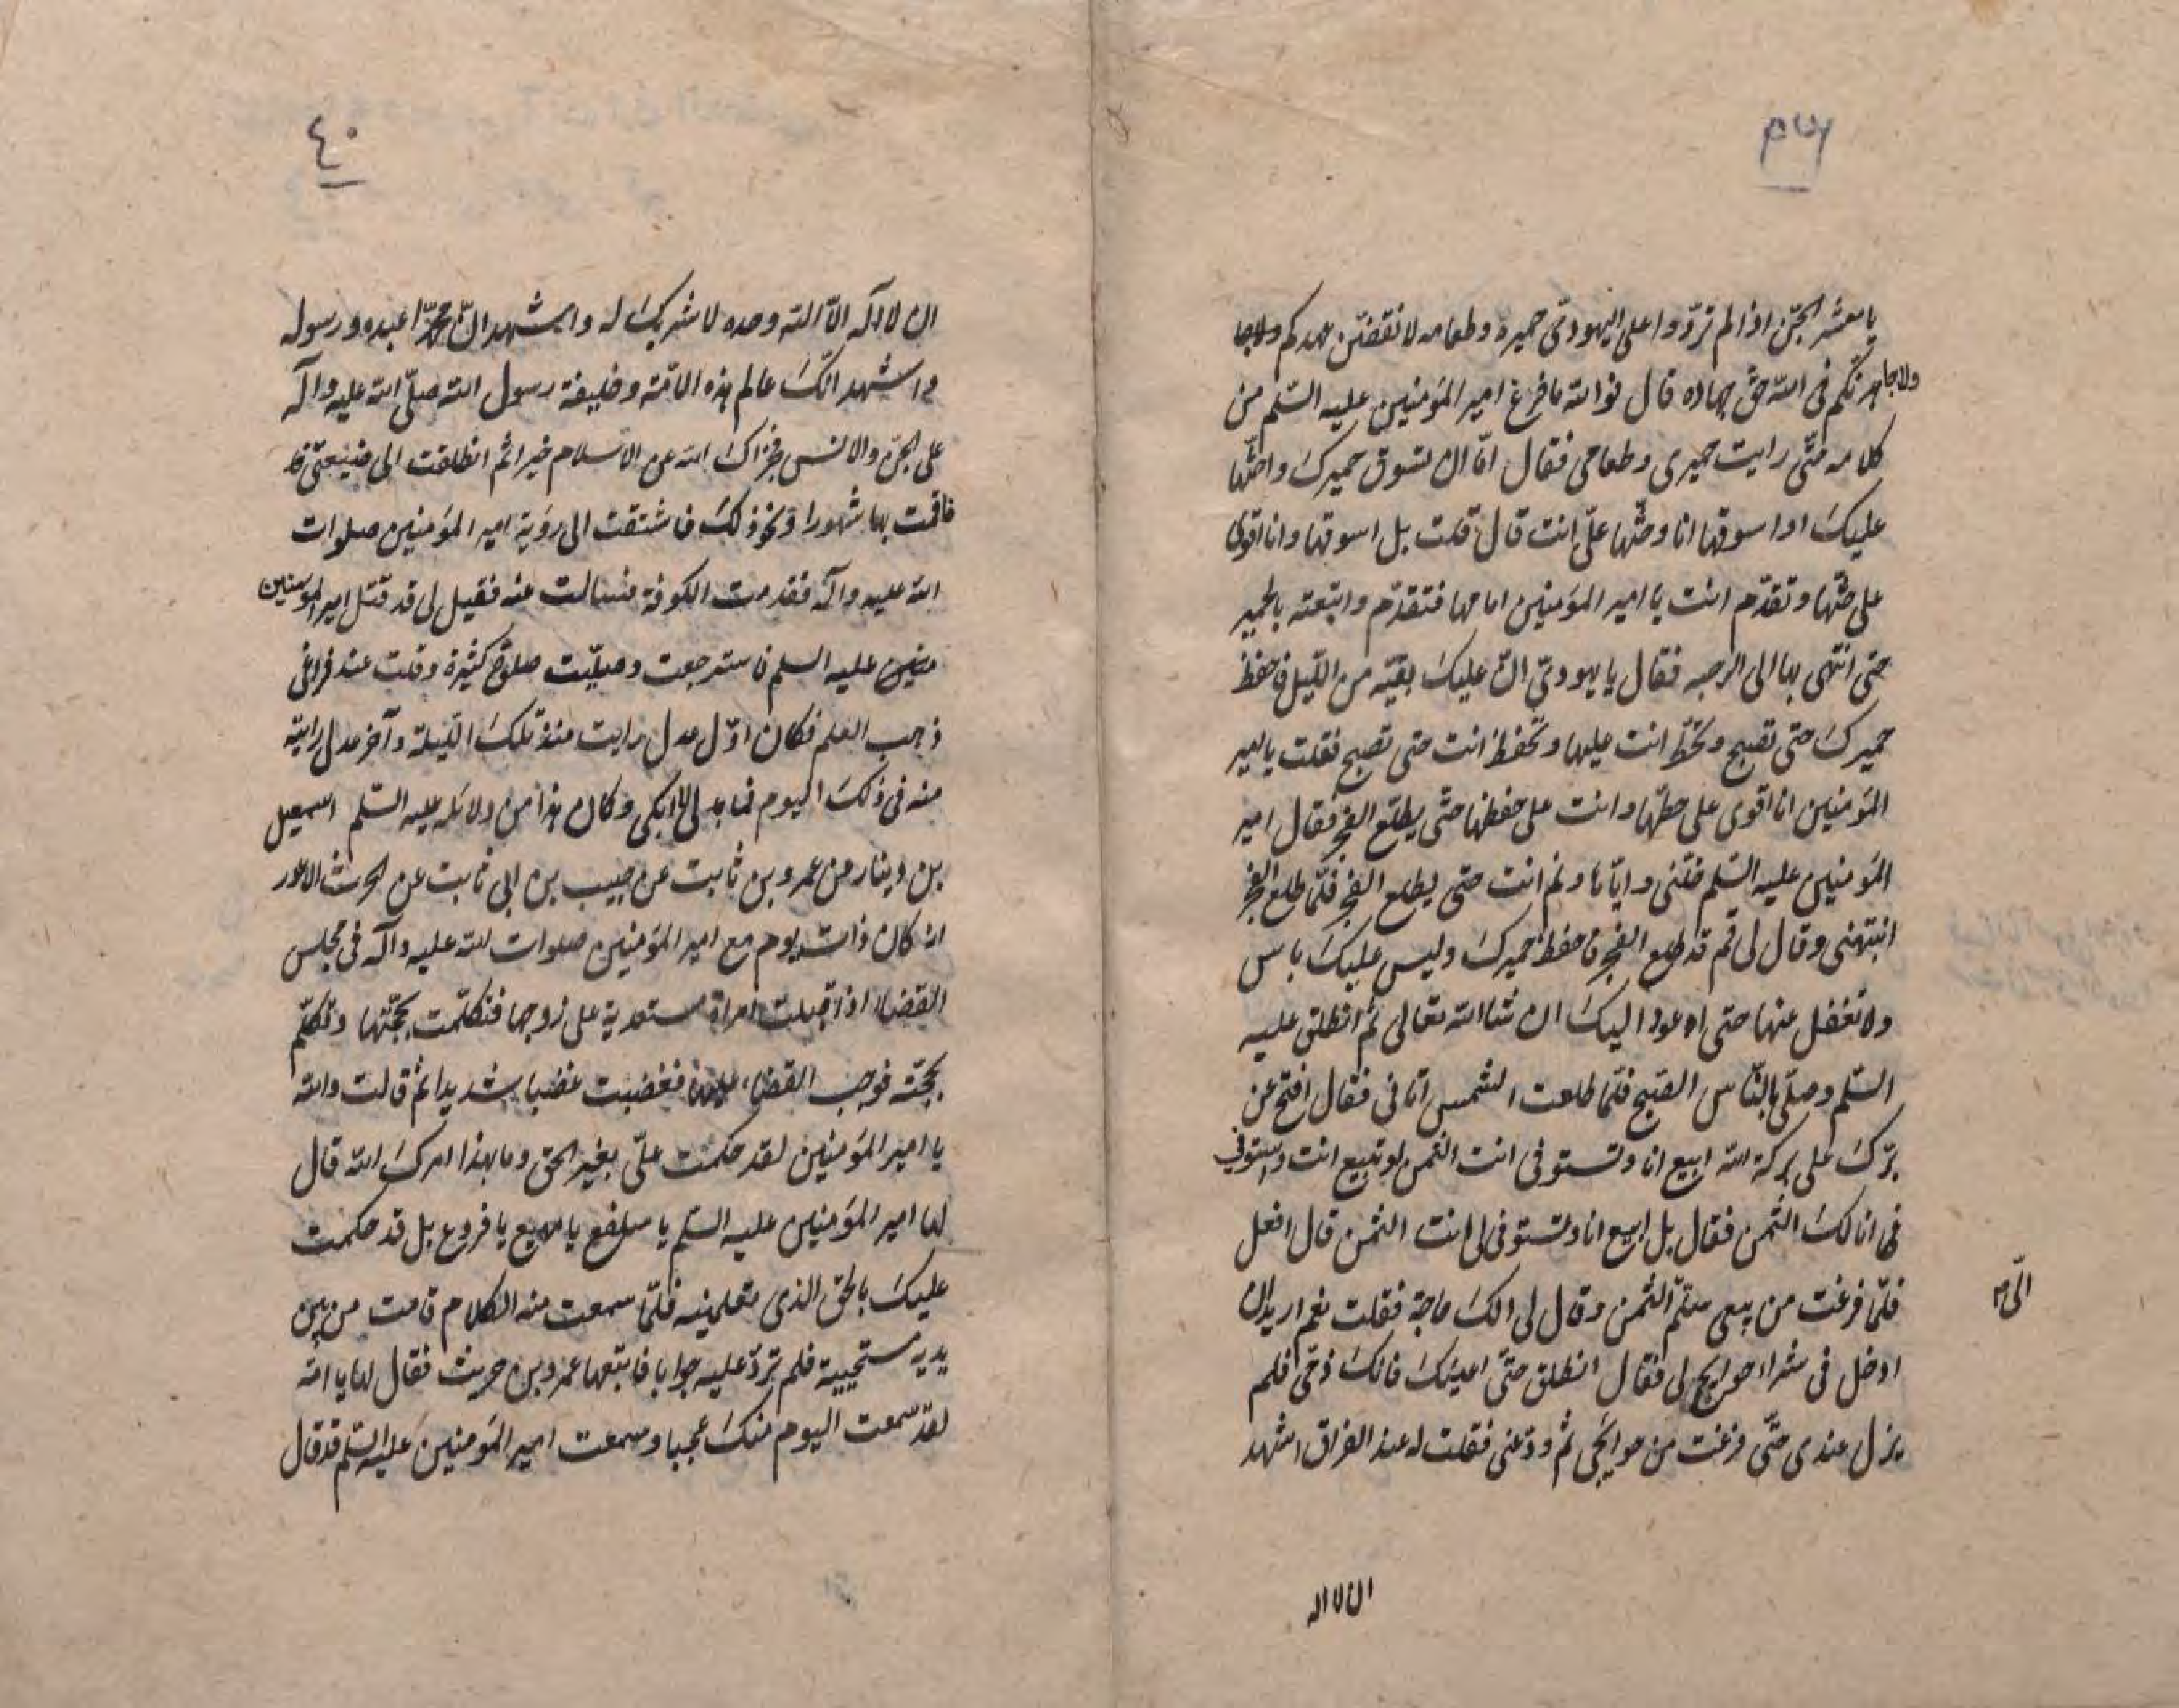 يا معشر الجنّ اذا لم تردّوا على اليهوديّ حميره وطعامه لانقضنّ عهدكم ولاجا
ولاجاهدنّكم فى اللّه حقّ جهاده قال فوالله ما فرغ امير المؤمنين عليه السّلم من
كلامه حتّى رايت حميرى وطعامى فقال امّا ان تسوق حميرك واحثّها
عليك او اسوقها انا وحثّها علىّ انت قال قلت بل اسوقها وانا اقوى
على حثّها وتقدّم انت يا امير المؤمنين امامها فتقدّم واتبعته بالحمير
حتى انتهى بها الى الرحبه فقال يا يهودىّ انّ عليك بقيّه من اللّيل فاحفظ
حميرك حتى تصبح وتحطّ انت عليها وتحفظ انت حتى تصبح فقلت يا امير
المؤمنين انا اقوى على حطّها وانت على حفظها حتّى يطلع الفجر فقال امير
المؤمنين عليه السّلم خلّنى وايّاها ونم انت حتى يطلع الفجر فلمّا طلع الفجر
انبتهنى وقال لى قم قد طلع الفجر فاحفظ حميرك وليس عليك باس
ولا تغفل عنها حتى اعود اليك ان شاالله تعالى ثم انطلق عليه
السّلم وصلّى بالنّاس الصّبح فلمّا طلعت الشمس اتانى فقال افتح عن
برّك على بركة الله ابيع انا وتستوفى انت الثمن او تبيع انت واستوفى
انا لك الثّمن فقال بل ابيع انا وتستوفى لى انت الثمن قال افعل
فلمّا فرغت من بيعى سلّم الثمن وقال لى الك حاجة فقلت نعم اريد ان
الىّ
ادخل فى شراء حوايج لى فقال انطلق حتّى اعينك فانك ذمّى فلم
يزل عندى حتّى فرغت من حوايجى ثم ودّعنى فقلت له عند الفراق اشهد
ان لا اله
٤٠
ان لا اله الّا الله وحده لا شريك له واشهد انّ محمّدا عبده ورسوله
واشهد انّك عالم هذه الامّة وخليفة رسول الله صلّى الله عليه وآله
على الجنّ والانس فجزاك الله عن الاسلام خيرا ثم انطلقت الى ضيعتى
فاقمت بها شهورا او نحو ذلك فاشتقت الى رؤية امير المؤمنين صلوات
الله عليه وآله فقدمت الكوفة فسالت عنه فقيل لى قد قتل امير المومنين
منين عليه السلم فاسترجعت وصلّيت صلوة كثيرة وقلت عند فراغى
ذهب العلم فكان اوّل عدل رايت منذ تلك اللّيلة وآخر عدل رايته
منه فى ذلك اليوم فما بد لى لا ابكى وكان هذا من دلائله عليه السّلم اسمعيل
بن دينار عن عمرو بن ثابت عن حبيب بن ابى ثابت عن الحرث الاعور
انه كان ذات يوم مع امير المؤمنين صلوات الله عليه وآله فى مجلس
القضاء اذ اقبلت امراة مستعدية على زوجها فتكلّمت بحجّتها وتكلّم
بحجّته فوجب القضاء عليها فغضبت غضبا شديدا ثم قالت والله
يا امير المؤمنين لقد حكمت علىّ بغير الحق وما بهذا امرك الله قال
لها امير المؤمنين عليه السّلم يا سلفع يا مهيع يا فروع بل قد حكمت
عليك بالحق الذى تعلمينه فلمّا سمعت منه الكلام قامت من بين
يديه مستحيية فلم تردّ عليه جوابا فاتبعها عمرو بن حريث فقال لها يا امة
لقد سمعت اليوم منك عجبا وسمعت امير المؤمنين عليه السّلم قد قال